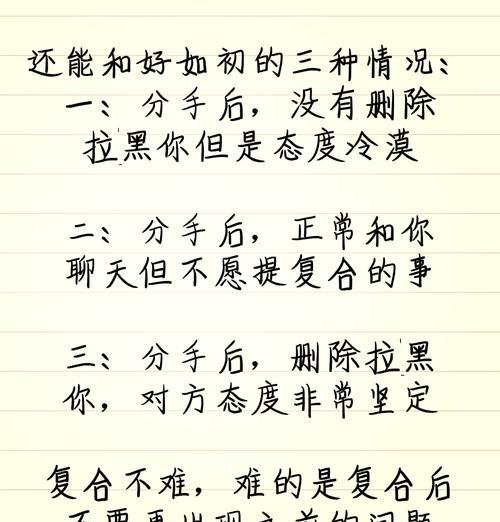 还能和好如初的三种情况：
一：分手后，没有删除
拉黑你但是态度冷漠
二：分手后，正常和你
聊天但不愿提复合的事
三：分手后，删除拉黑
你，对方态度非常坚定
复合不难，难的是复合后
不要再出现之前的问题